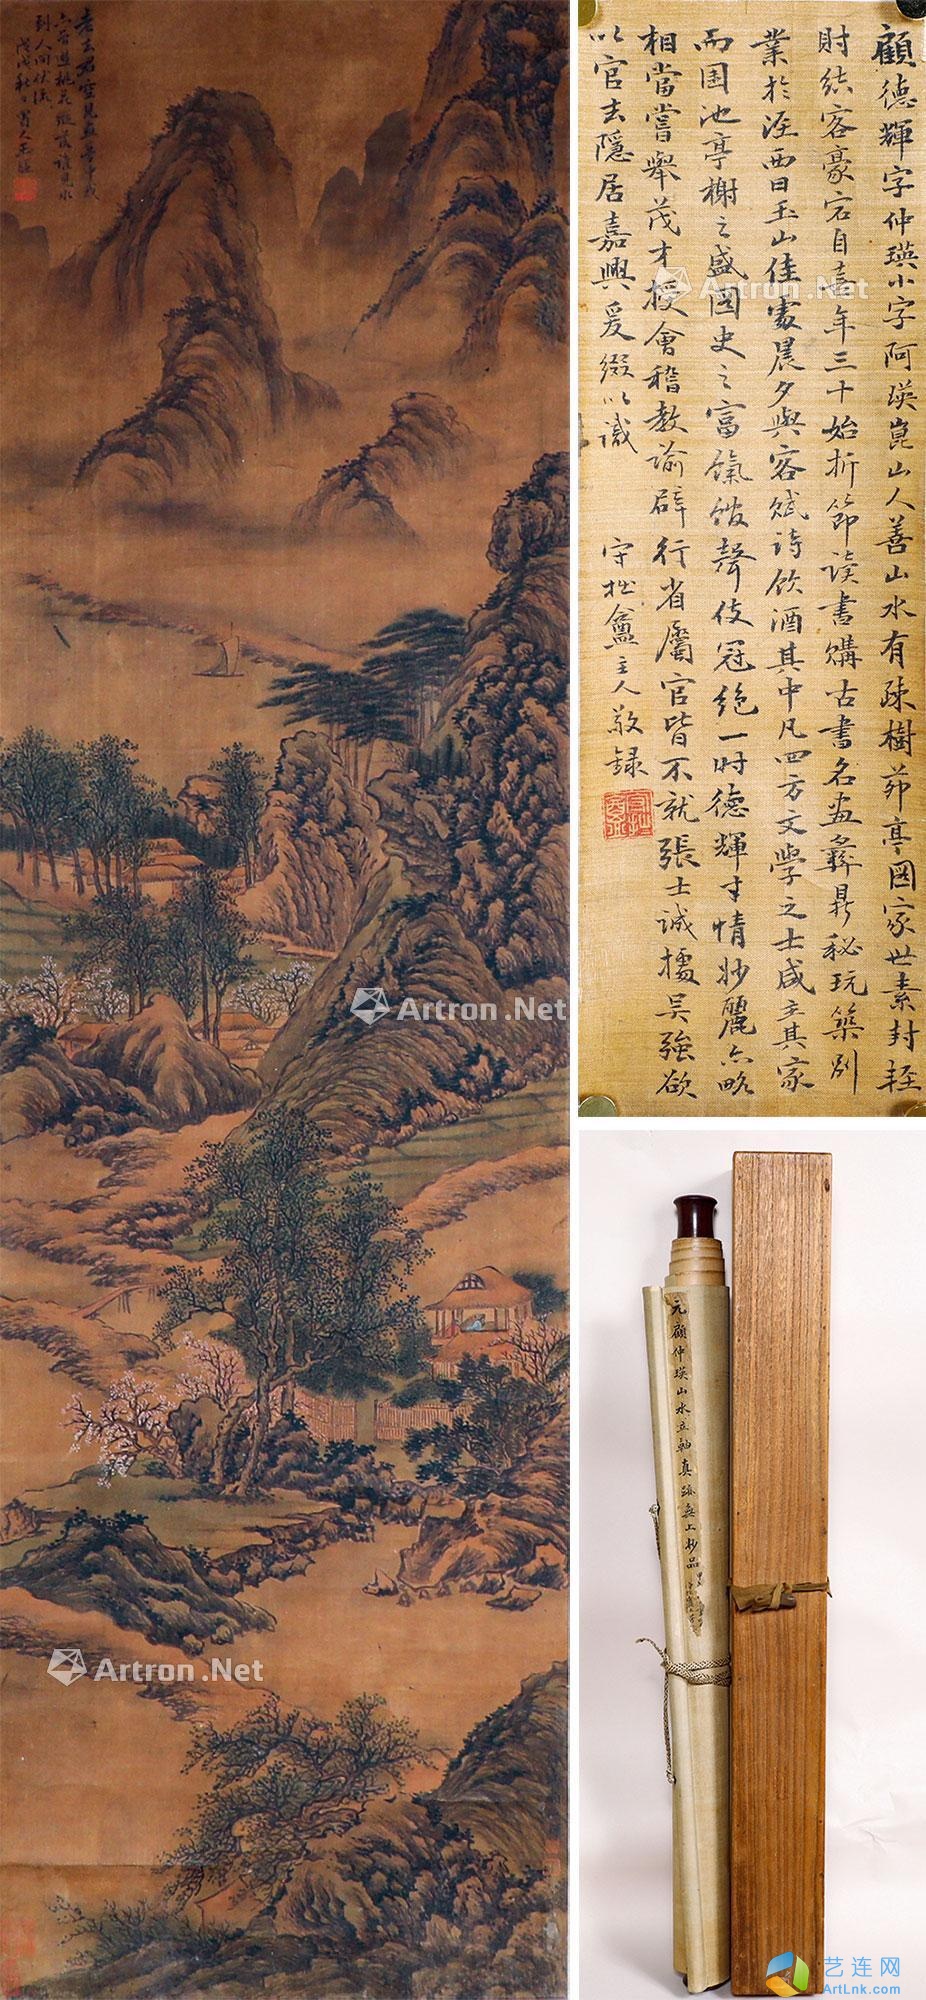 顧德輝字仲瑛小字阿瑛崑山人善山水有疎樹茆亭圖家世素封輕
財結客豪宕自喜年三十始折節讀書購古書名画彝鼎秘玩築別
業於涇西曰玉山佳處晨夕與客賦詩飲酒其中凡四方文學之士咸主其家
而園池亭榭之盛圖史之富餼館聲伎冠絶一時德輝才情妙麗亦略
相當嘗舉茂才授會稽教諭辟行省屬官皆不就張士誠據吳強欲
以官去隱居嘉興爰綴以識
守拙盦主人敬録
元顧仲瑛山水立軸真跡無上妙品
Artron.Net
Artron.Net
Artron.Net
Artron.Net
艺连网
ArtLnk.com